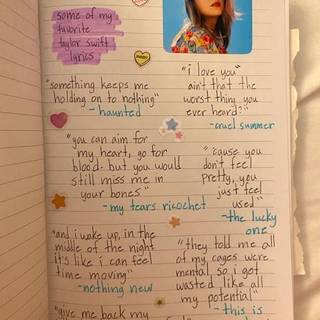 some of my
favorite
taylor swift
lyrics
"something keeps me
holding on to nothing"
- haunted
"i love you"
ain't that the
worst thing you
ever heard?"
- cruel summer
"you can aim for
my heart, go for
blood. but you would
still miss me in
your bones"
- my tears ricochet
"'cause you
don't feel
pretty, you
just feel
used"
- the lucky
one
"and i woke up, in the
middle of the night
it's like i can feel
time moving"
- nothing new
"they told me all
of my cages were
mental, so i got
wasted like all
my potential"
- this is
"give me back my